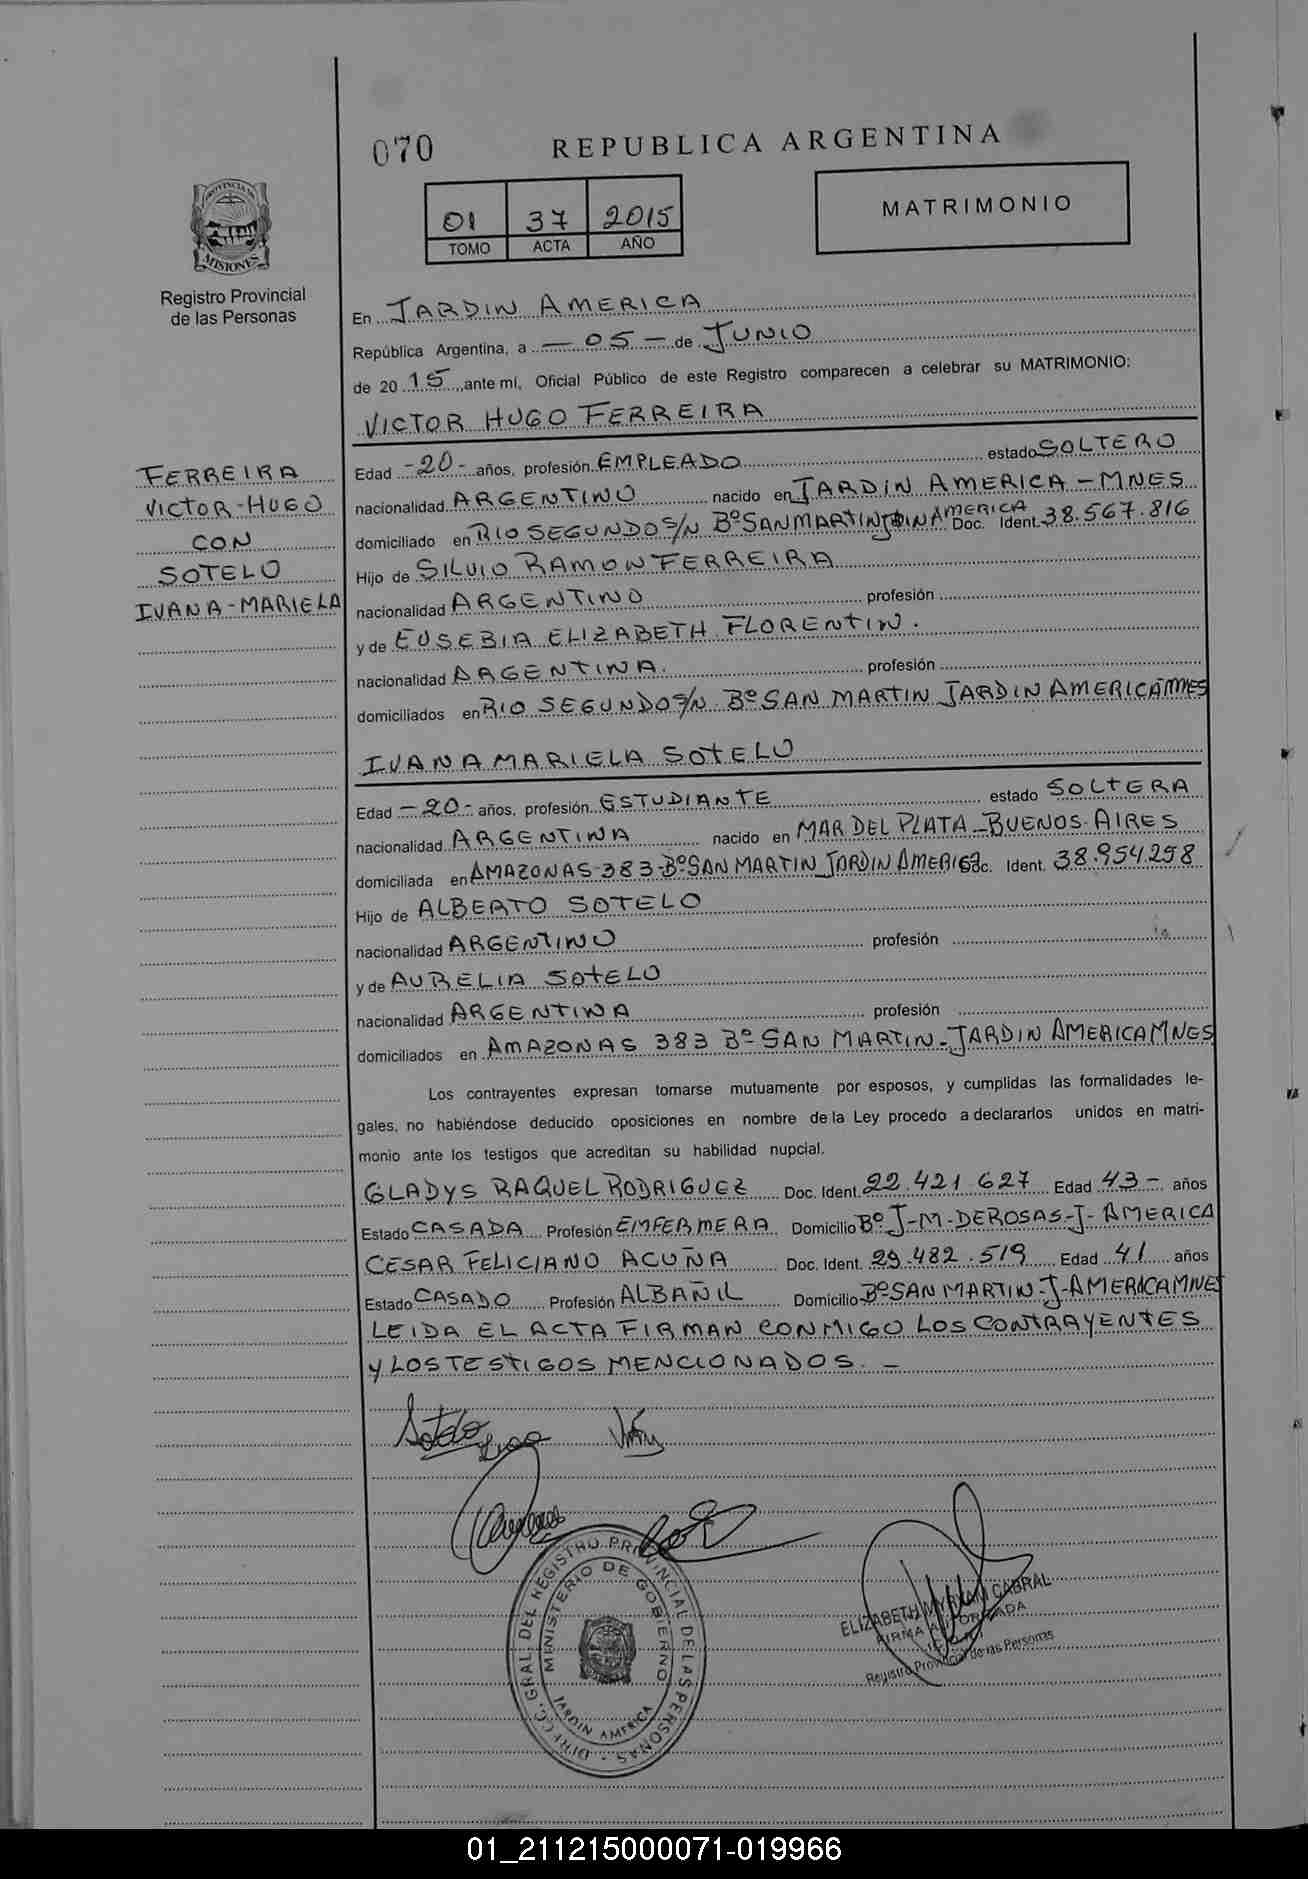 070 REPUBLICA ARGENTINA
01 37 2015
TOMO ACTA AÑO
MATRIMONIO
PROVINCIA DE
MISIONES
Registro Provincial
de las Personas
FERREIRA
VICTOR-HUGO
CON
SOTELO
IVANA-MARIELA
En JARDIN AMERICA
República Argentina, a - 05 - de JUNIO
de 20 15 ,ante mí, Oficial Público de este Registro comparecen a celebrar su MATRIMONIO:
VICTOR HUGO FERREIRA
Edad -20- años, profesión EMPLEADO estado SOLTERO
nacionalidad ARGENTINO nacido en JARDIN AMERICA - MNES
domiciliado en RIO SEGUNDO S/N Bº SAN MARTIN JDIN AMERICA Doc. Ident. 38.567.816
Hijo de SILVIO RAMON FERREIRA
nacionalidad ARGENTINO profesión
y de EUSEBIA ELIZABETH FLORENTIN.
nacionalidad ARGENTINA. profesión
domiciliados en RIO SEGUNDO S/N Bº SAN MARTIN JARDIN AMERICA MNES
IVANA MARIELA SOTELO
Edad -20- años, profesión ESTUDIANTE estado SOLTERA
nacionalidad ARGENTINA nacido en MAR DEL PLATA - BUENOS AIRES
domiciliada en AMAZONAS-383-Bº SAN MARTIN JARDIN AMERICA Doc. Ident. 38.954.298
Hijo de ALBERTO SOTELO
nacionalidad ARGENTINO profesión
y de AURELIA SOTELO
nacionalidad ARGENTINA profesión
domiciliados en AMAZONAS 383 Bº SAN MARTIN - JARDIN AMERICA MNES
Los contrayentes expresan tomarse mutuamente por esposos, y cumplidas las formalidades le-
gales, no habiéndose deducido oposiciones en nombre de la Ley procedo a declararlos unidos en matri-
monio ante los testigos que acreditan su habilidad nupcial.
GLADYS RAQUEL RODRIGUEZ Doc. Ident. 22.421.627 Edad 43- años
Estado CASADA Profesión ENFERMERA Domicilio Bº J-M-DEROSAS-J-AMERICA
CESAR FELICIANO ACUÑA Doc. Ident. 29.482.519 Edad 41 años
Estado CASADO Profesión ALBAÑIL Domicilio Bº SAN MARTIN-J-AMERICA MNES
LEIDA EL ACTA FIRMAN CONMIGO LOS CONTRAYENTES
Y LOS TESTIGOS MENCIONADOS. -
Sotelo
DIRECC. GRAL. DEL REGISTRO PROVINCIAL DE LAS PERSONAS
MINISTERIO DE GOBIERNO
JARDIN AMERICA
ELIZABETH MYRIAN CABRAL
FIRMA AUTORIZADA
Registro Provincial de las Personas
01_211215000071-019966